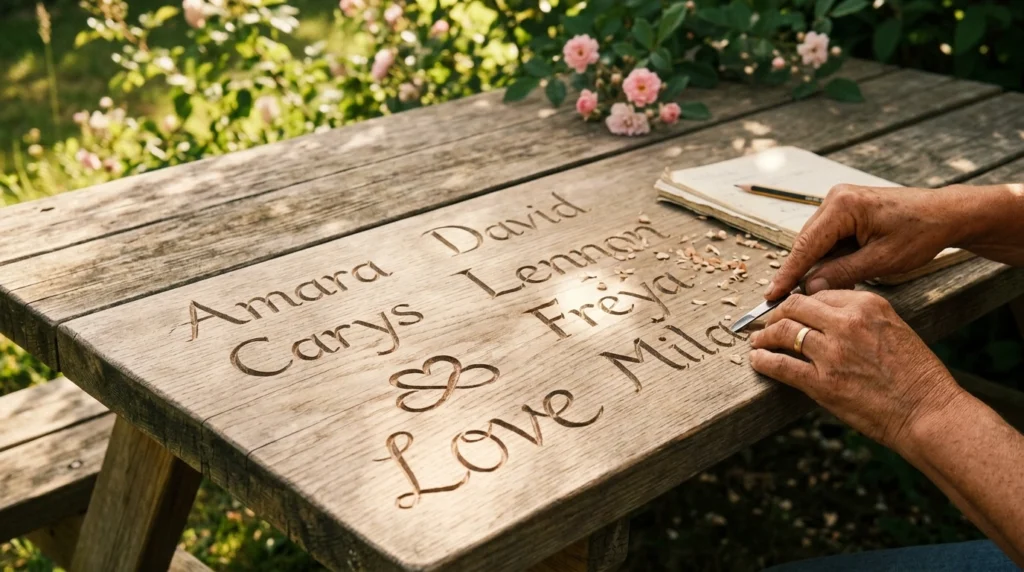 Amara David
Carys Lennon
Freya
Love Mila